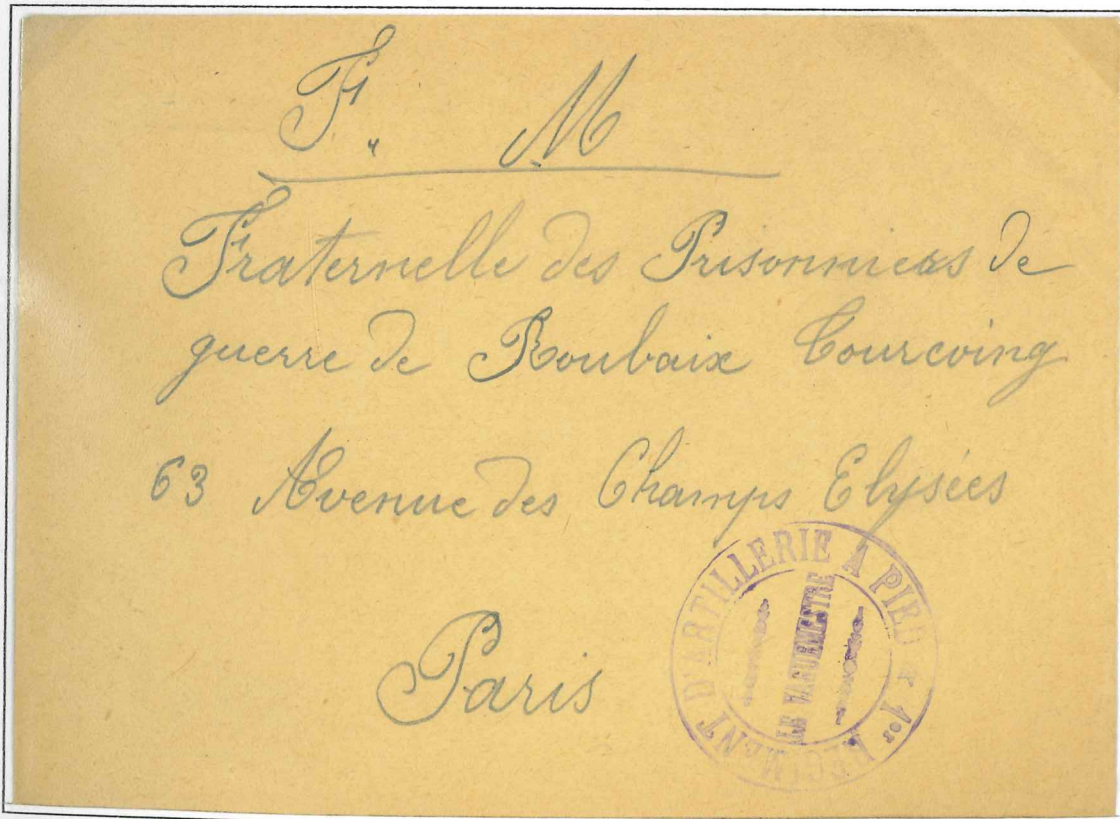 F. M
Fraternelle des Prisonniers de
guerre de Roubaix Tourcoing
63 Avenue des Champs Elysées
Paris
1er REGIMENT D'ARTILLERIE A PIED
LE VAGUEMESTRE